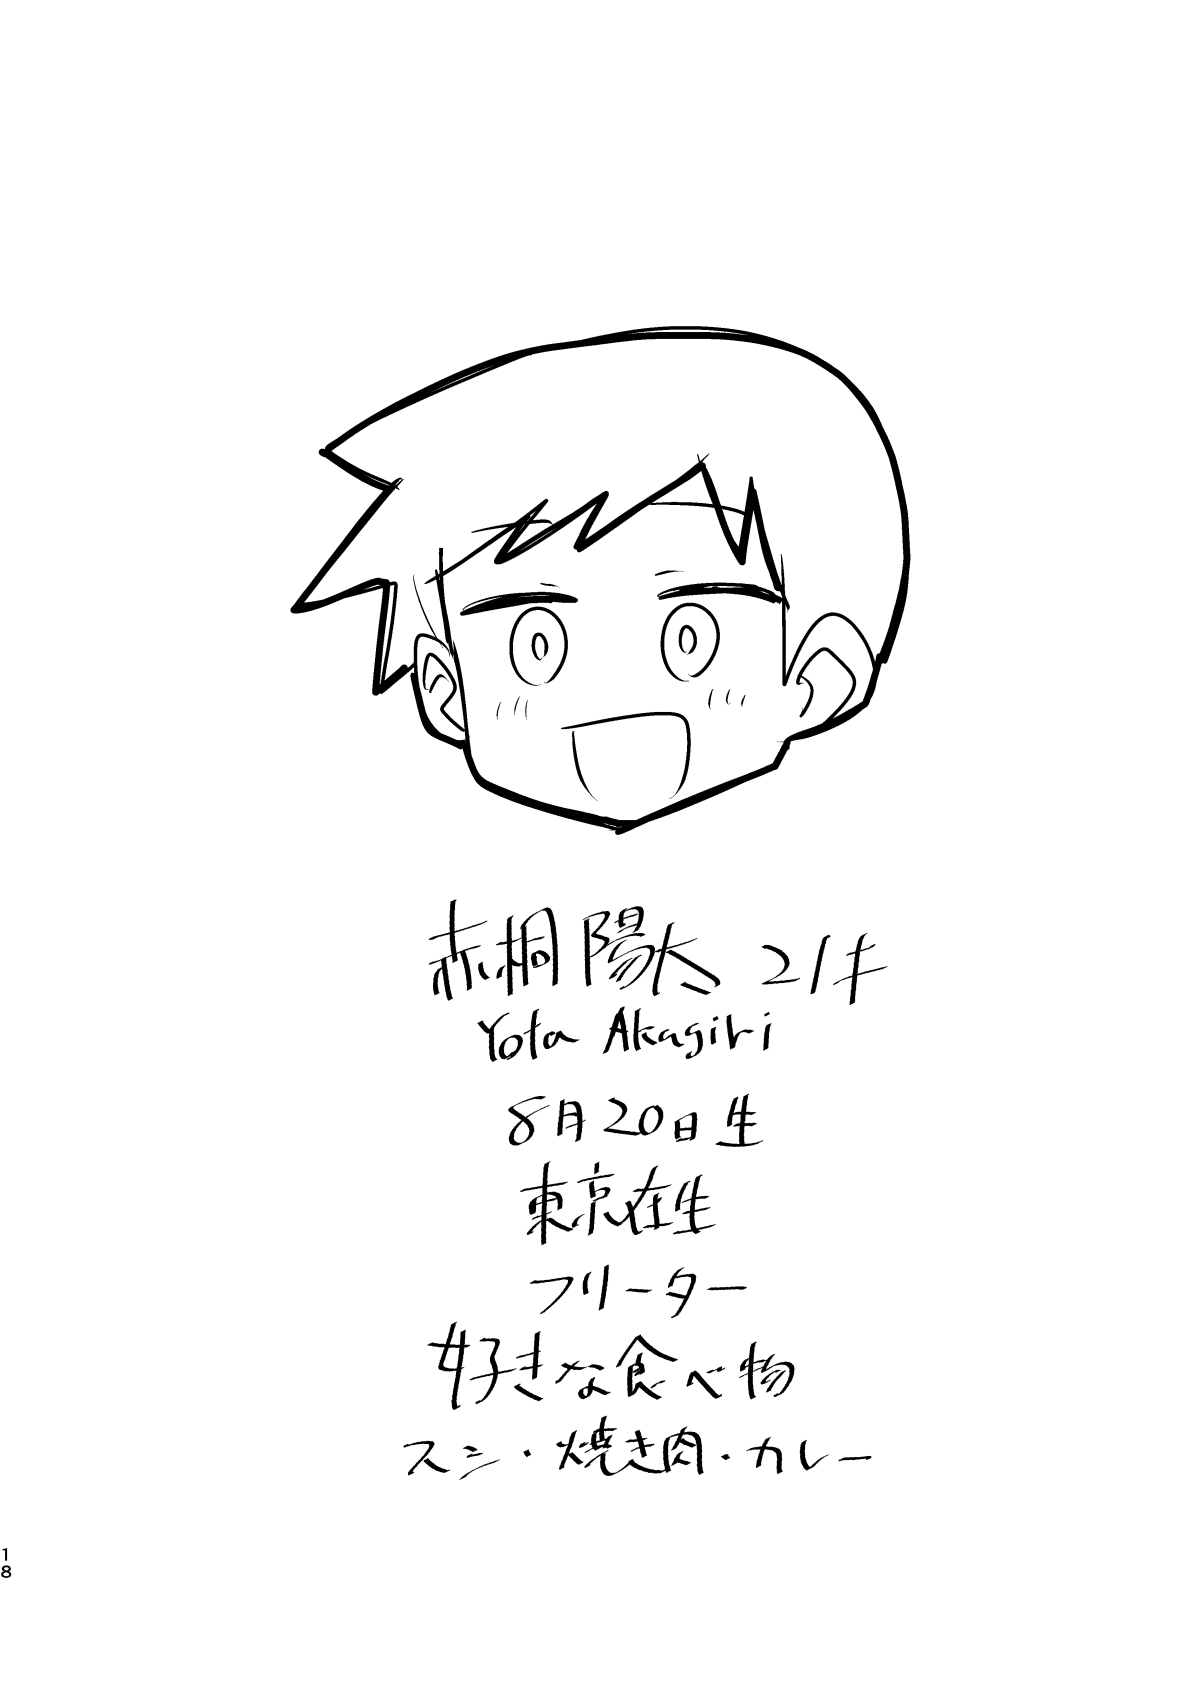 赤桐 陽太 21才
Yota Akagiri
8月20日生
東京在生
フリーター
好きな食べ物
スシ・焼き肉・カレー
18